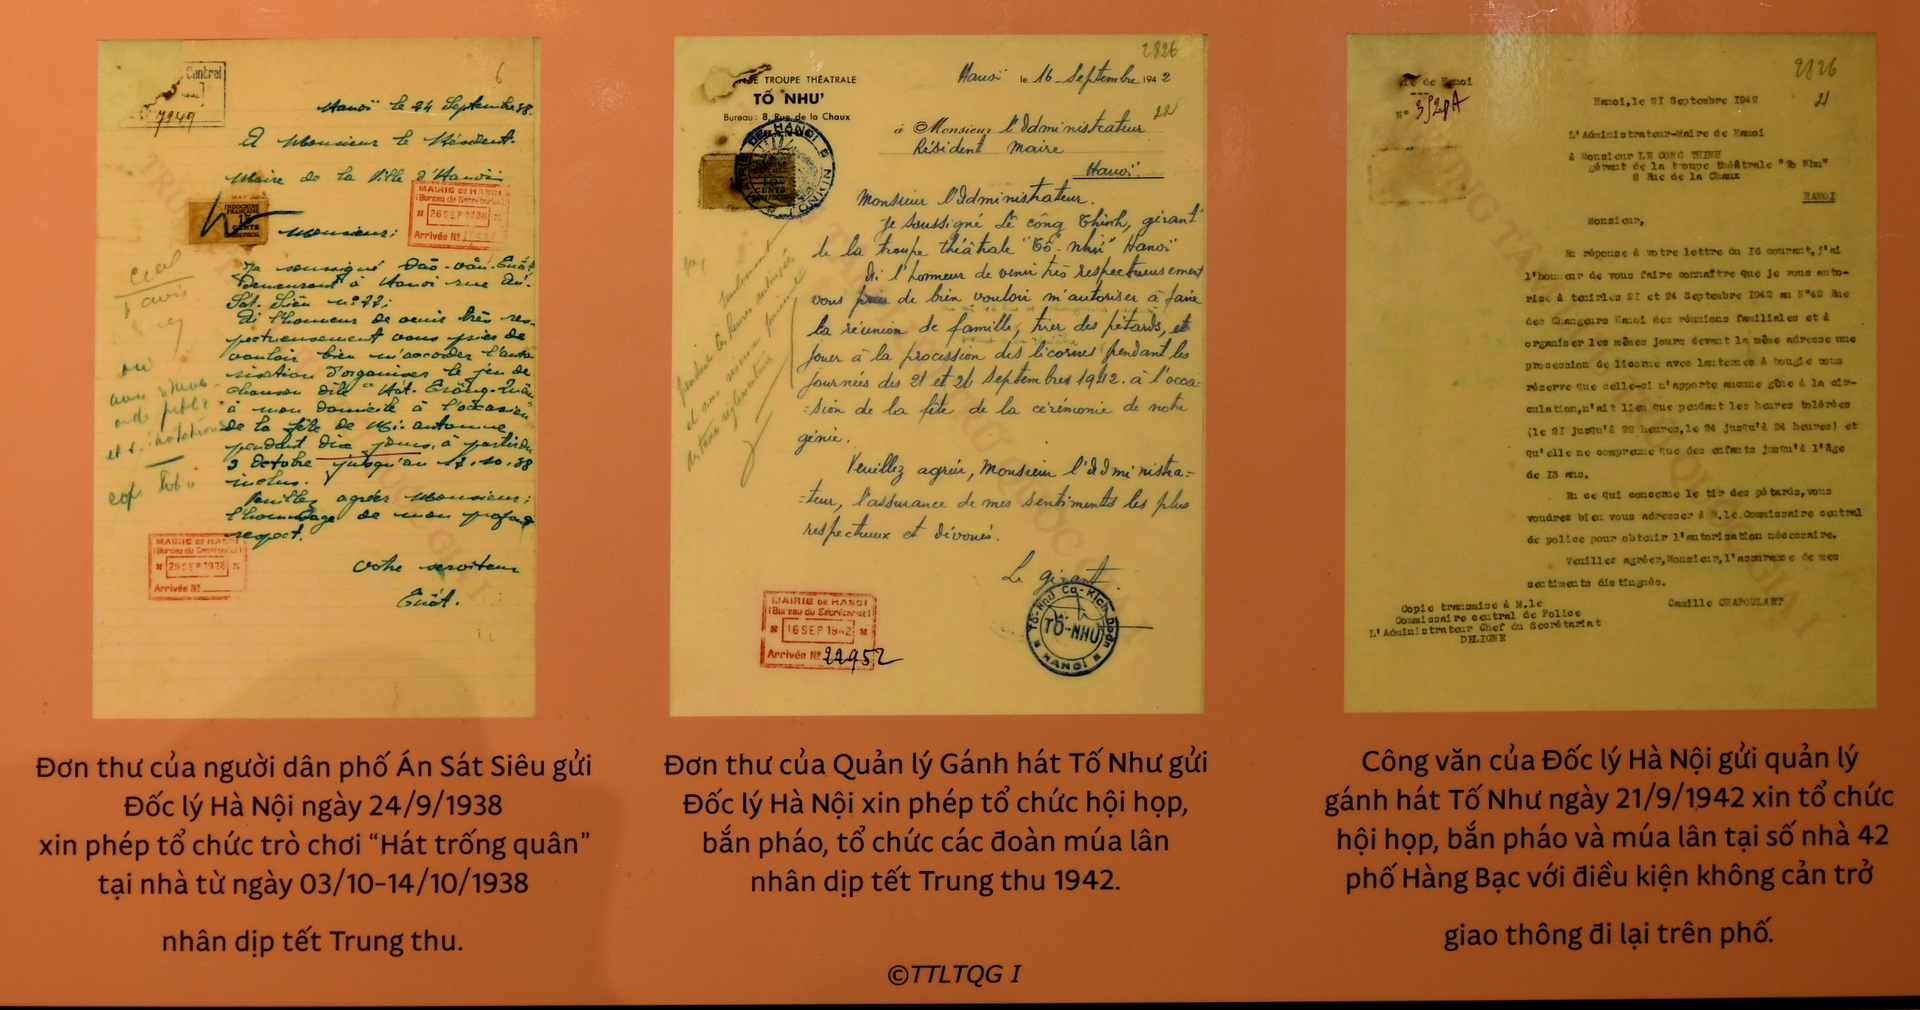 Central
7249
6
Hanoï le 24 Septembre 38.
A Monsieur le Résident.
Maire de la Ville d'Hanoï
MAIRIE DE HANOI
(Bureau du Secrétariat)
26 SEP 1938
Arrivée Nº
INDOCHINE
FRANÇAISE
15
CENTS
Monsieur:
Je soussigné Đào-văn-Suất
Demeurant à Hanoi rue Án-
Sát-Siêu nº 22;
Ai l'honneur de venir très res-
pectueusement vous prier de
vouloir bien m'accorder l'auto
risation d'organiser le jeu de
chanson dite "Hát-Trống-Quân"
à mon domicile à l'occasion
de la fête de Mi-automne
pendant dix jours, à partir du
3 Octobre jusqu'au
inclus.
Veuillez agréer Monsieur;
l'hommage de mon profond
respect.
Votre serviteur
MAIRIE DE HANOI
(Bureau du Secrétariat)
29 SEP 1938
Arrivée Nº
Đơn thư của người dân phố Án Sát Siêu gửi
Đốc lý Hà Nội ngày 24/9/1938
xin phép tổ chức trò chơi “Hát trống quân”
tại nhà từ ngày 03/10-14/10/1938
nhân dịp tết Trung thu.
2826
TROUPE THÉATRALE
TỐ NHƯ
Bureau: 8, Rue de la Chaux
Hanoï le 16 Septembre 1942
à Monsieur l'Administrateur
Résident Maire
Hanoï
Monsieur l'Administrateur.
Je soussigné Lê công Thình, gérant
de la troupe théâtrale "Tố-Như" Hanoï
Ai l'honneur de venir très respectueusement
vous prier de bien vouloir m'autoriser à faire
la réunion de famille, tirer des pétards, et
jouer à la procession des licornes pendant les
journées des 21 et 24 Septembres 1942. à l'occa-
=sion de la fête de la cérémonie de notre
génie.
Veuillez agréer, Monsieur l'Administra-
=teur, l'assurance de mes sentiments les plus
respectueux et dévoués.
Le gérant
MAIRIE DE HANOI
(Bureau du Secrétariat)
16 SEP 1942
Arrivée Nº 22952
Tố-Như Ca-Kịch Đoàn
TỐ-NHƯ
HANOI
Đơn thư của Quản lý Gánh hát Tố Như gửi
Đốc lý Hà Nội xin phép tổ chức hội họp,
bắn pháo, tổ chức các đoàn múa lân
nhân dịp tết Trung thu 1942.
©TTLTQG I
2826
21
de Hanoi
Nº
Hanoi, le 21 Septembre 1942
L'Administrateur-Maire de Hanoi
à Monsieur LE CONG THINH
gérant de la troupe théâtrale "To Nhu"
8 Rue de la Chaux
HANOI
Monsieur,
En réponse à votre lettre du 16 courant, j'ai
l'honneur de vous faire connaître que je vous auto-
rise à tenir les 21 et 24 Septembre 1942 au Nº42 Rue
des Changeurs Hanoi des réunions familiales et à
organiser les mêmes jours devant la même adresse une
procession de licorne avec lanternes à bougie sous
réserve que celle-ci n'apporte aucune gêne à la cir-
culation, n'ait lieu que pendant les heures tolérées
(le 21 jusqu'à 22 heures, le 24 jusqu'à 24 heures) et
qu'elle ne comprenne que des enfants jusqu'à l'âge
de 13 ans.
En ce qui concerne le tir des pétards, vous
voudrez bien vous adresser à M.le Commissaire central
de police pour obtenir l'autorisation nécessaire.
Veuillez agréer, Monsieur, l'assurance de mes
sentiments distingués.
Camille CHAPOULART
Copie transmise à M.le
Commissaire central de Police
L'Administrateur Chef du Secrétariat
DELIGNE
Công văn của Đốc lý Hà Nội gửi quản lý
gánh hát Tố Như ngày 21/9/1942 xin tổ chức
hội họp, bắn pháo và múa lân tại số nhà 42
phố Hàng Bạc với điều kiện không cản trở
giao thông đi lại trên phố.